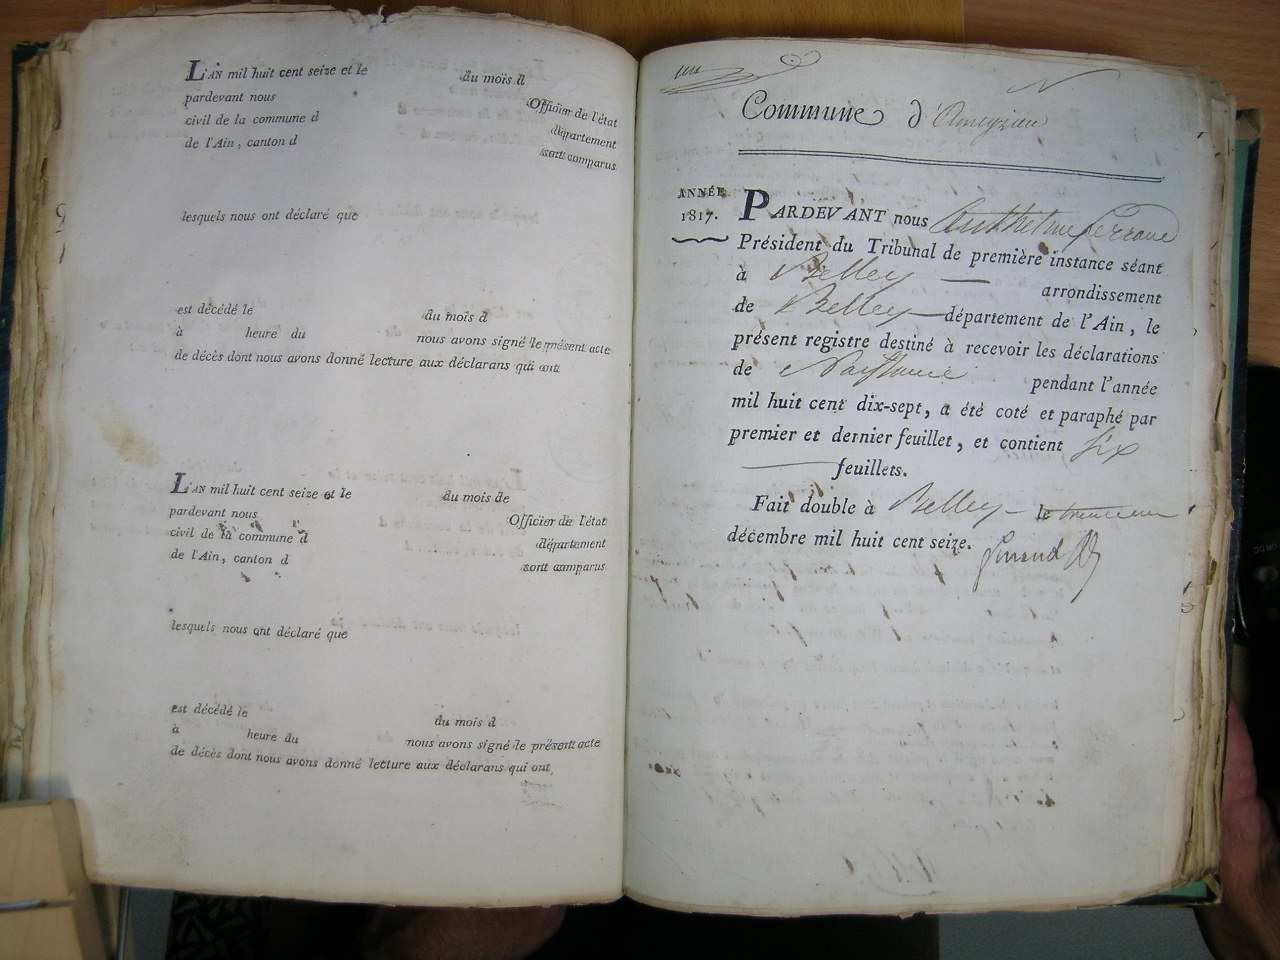 L'AN mil huit cent seize et le du mois d
pardevant nous Officier de l'état
civil de la commune d département
de l'Ain, canton d sont comparus
lesquels nous ont déclaré que
est décédé le du mois d
à heure du nous avons signé le présent acte
de décès dont nous avons donné lecture aux déclarans qui ont
L'AN mil huit cent seize et le du mois de
pardevant nous Officier de l'état
civil de la commune d département
de l'Ain, canton d sont comparus
lesquels nous ont déclaré que
est décédé le du mois d
à heure du nous avons signé le présent acte
de décès dont nous avons donné lecture aux déclarans qui ont
Commune d'Ameyzieu
ANNÉE
1817.
PARDEVANT nous
Président du Tribunal de première instance séant
à Belley arrondissement
de Belley département de l'Ain, le
présent registre destiné à recevoir les déclarations
de Naissance pendant l'année
mil huit cent dix-sept, a été coté et paraphé par
premier et dernier feuillet, et contient six
feuillets.
Fait double à Belley le
décembre mil huit cent seize.